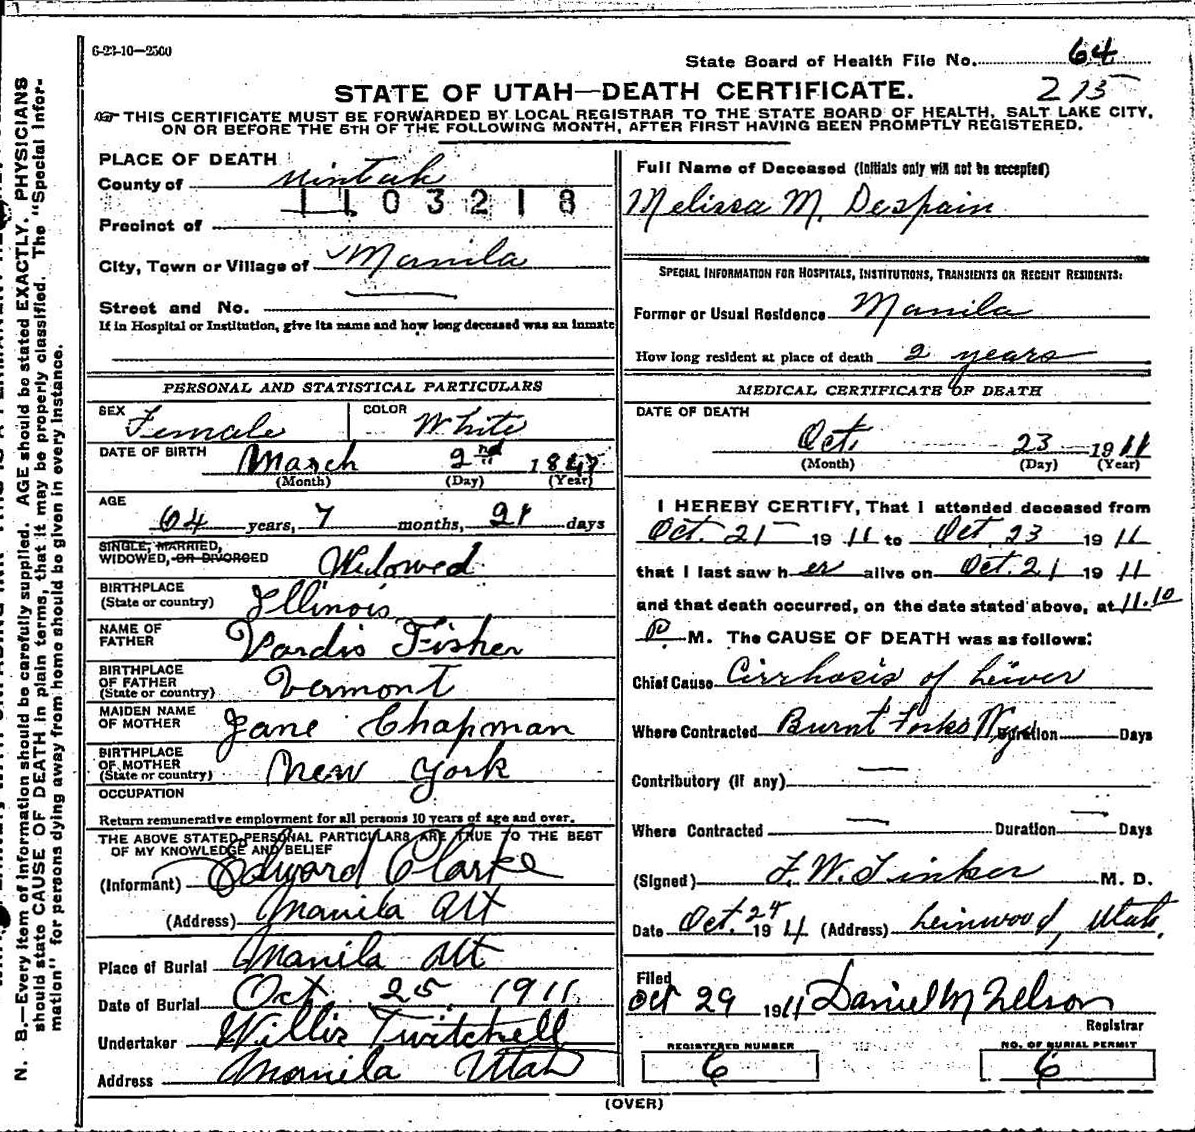 6-23-10—2500
State Board of Health File No. 64
STATE OF UTAH—DEATH CERTIFICATE. 215
THIS CERTIFICATE MUST BE FORWARDED BY LOCAL REGISTRAR TO THE STATE BOARD OF HEALTH, SALT LAKE CITY,
ON OR BEFORE THE 5TH OF THE FOLLOWING MONTH, AFTER FIRST HAVING BEEN PROMPTLY REGISTERED.
PLACE OF DEATH
County of Uintah
1103218
Precinct of
City, Town or Village of Manila
Street and No.
If in Hospital or Institution, give its name and how long deceased was an inmate
PERSONAL AND STATISTICAL PARTICULARS
SEX Female COLOR White
DATE OF BIRTH March 2nd 1847
(Month) (Day) (Year)
AGE
64 years, 7 months, 21 days
SINGLE, MARRIED,
WIDOWED, OR DIVORCED Widowed
BIRTHPLACE
(State or country) Illinois
NAME OF
FATHER Vardis Fisher
BIRTHPLACE
OF FATHER
(State or country) Vermont
MAIDEN NAME
OF MOTHER Jane Chapman
BIRTHPLACE
OF MOTHER
(State or country) New York
OCCUPATION
Return remunerative employment for all persons 10 years of age and over.
THE ABOVE STATED PERSONAL PARTICULARS ARE TRUE TO THE BEST
OF MY KNOWLEDGE AND BELIEF
(Informant) Edward Clarke
(Address) Manila Ut
Place of Burial Manila Ut
Date of Burial Oct 25, 1911
Undertaker Willis Twitchell
Address Manila Utah
Full Name of Deceased (Initials only will not be accepted)
Melissa M. Despain
SPECIAL INFORMATION FOR HOSPITALS, INSTITUTIONS, TRANSIENTS OR RECENT RESIDENTS:
Former or Usual Residence Manila
How long resident at place of death 2 years
MEDICAL CERTIFICATE OF DEATH
DATE OF DEATH
Oct. 23 1911
(Month) (Day) (Year)
I HEREBY CERTIFY, That I attended deceased from
Oct. 21 1911 to Oct. 23 1911
that I last saw her alive on Oct. 21 1911
and that death occurred, on the date stated above, at 11.10
P M. The CAUSE OF DEATH was as follows:
Chief Cause Cirrhosis of Liver
Where Contracted Burnt Forks Wyo Duration Days
Contributory (if any) —
Where Contracted — Duration — Days
(Signed) F. W. Tinker M. D.
Date Oct. 24 1911 (Address) Leinwood, Utah.
Filed
Oct 29 1911 Daniel M Nelson
Registrar
REGISTERED NUMBER
6
NO. OF BURIAL PERMIT
6
(OVER)
N. B.—Every item of information should be carefully supplied. AGE should be stated EXACTLY. PHYSICIANS
should state CAUSE OF DEATH in plain terms, that it may be properly classified. The "Special Infor-
mation" for persons dying away from home should be given in every instance.